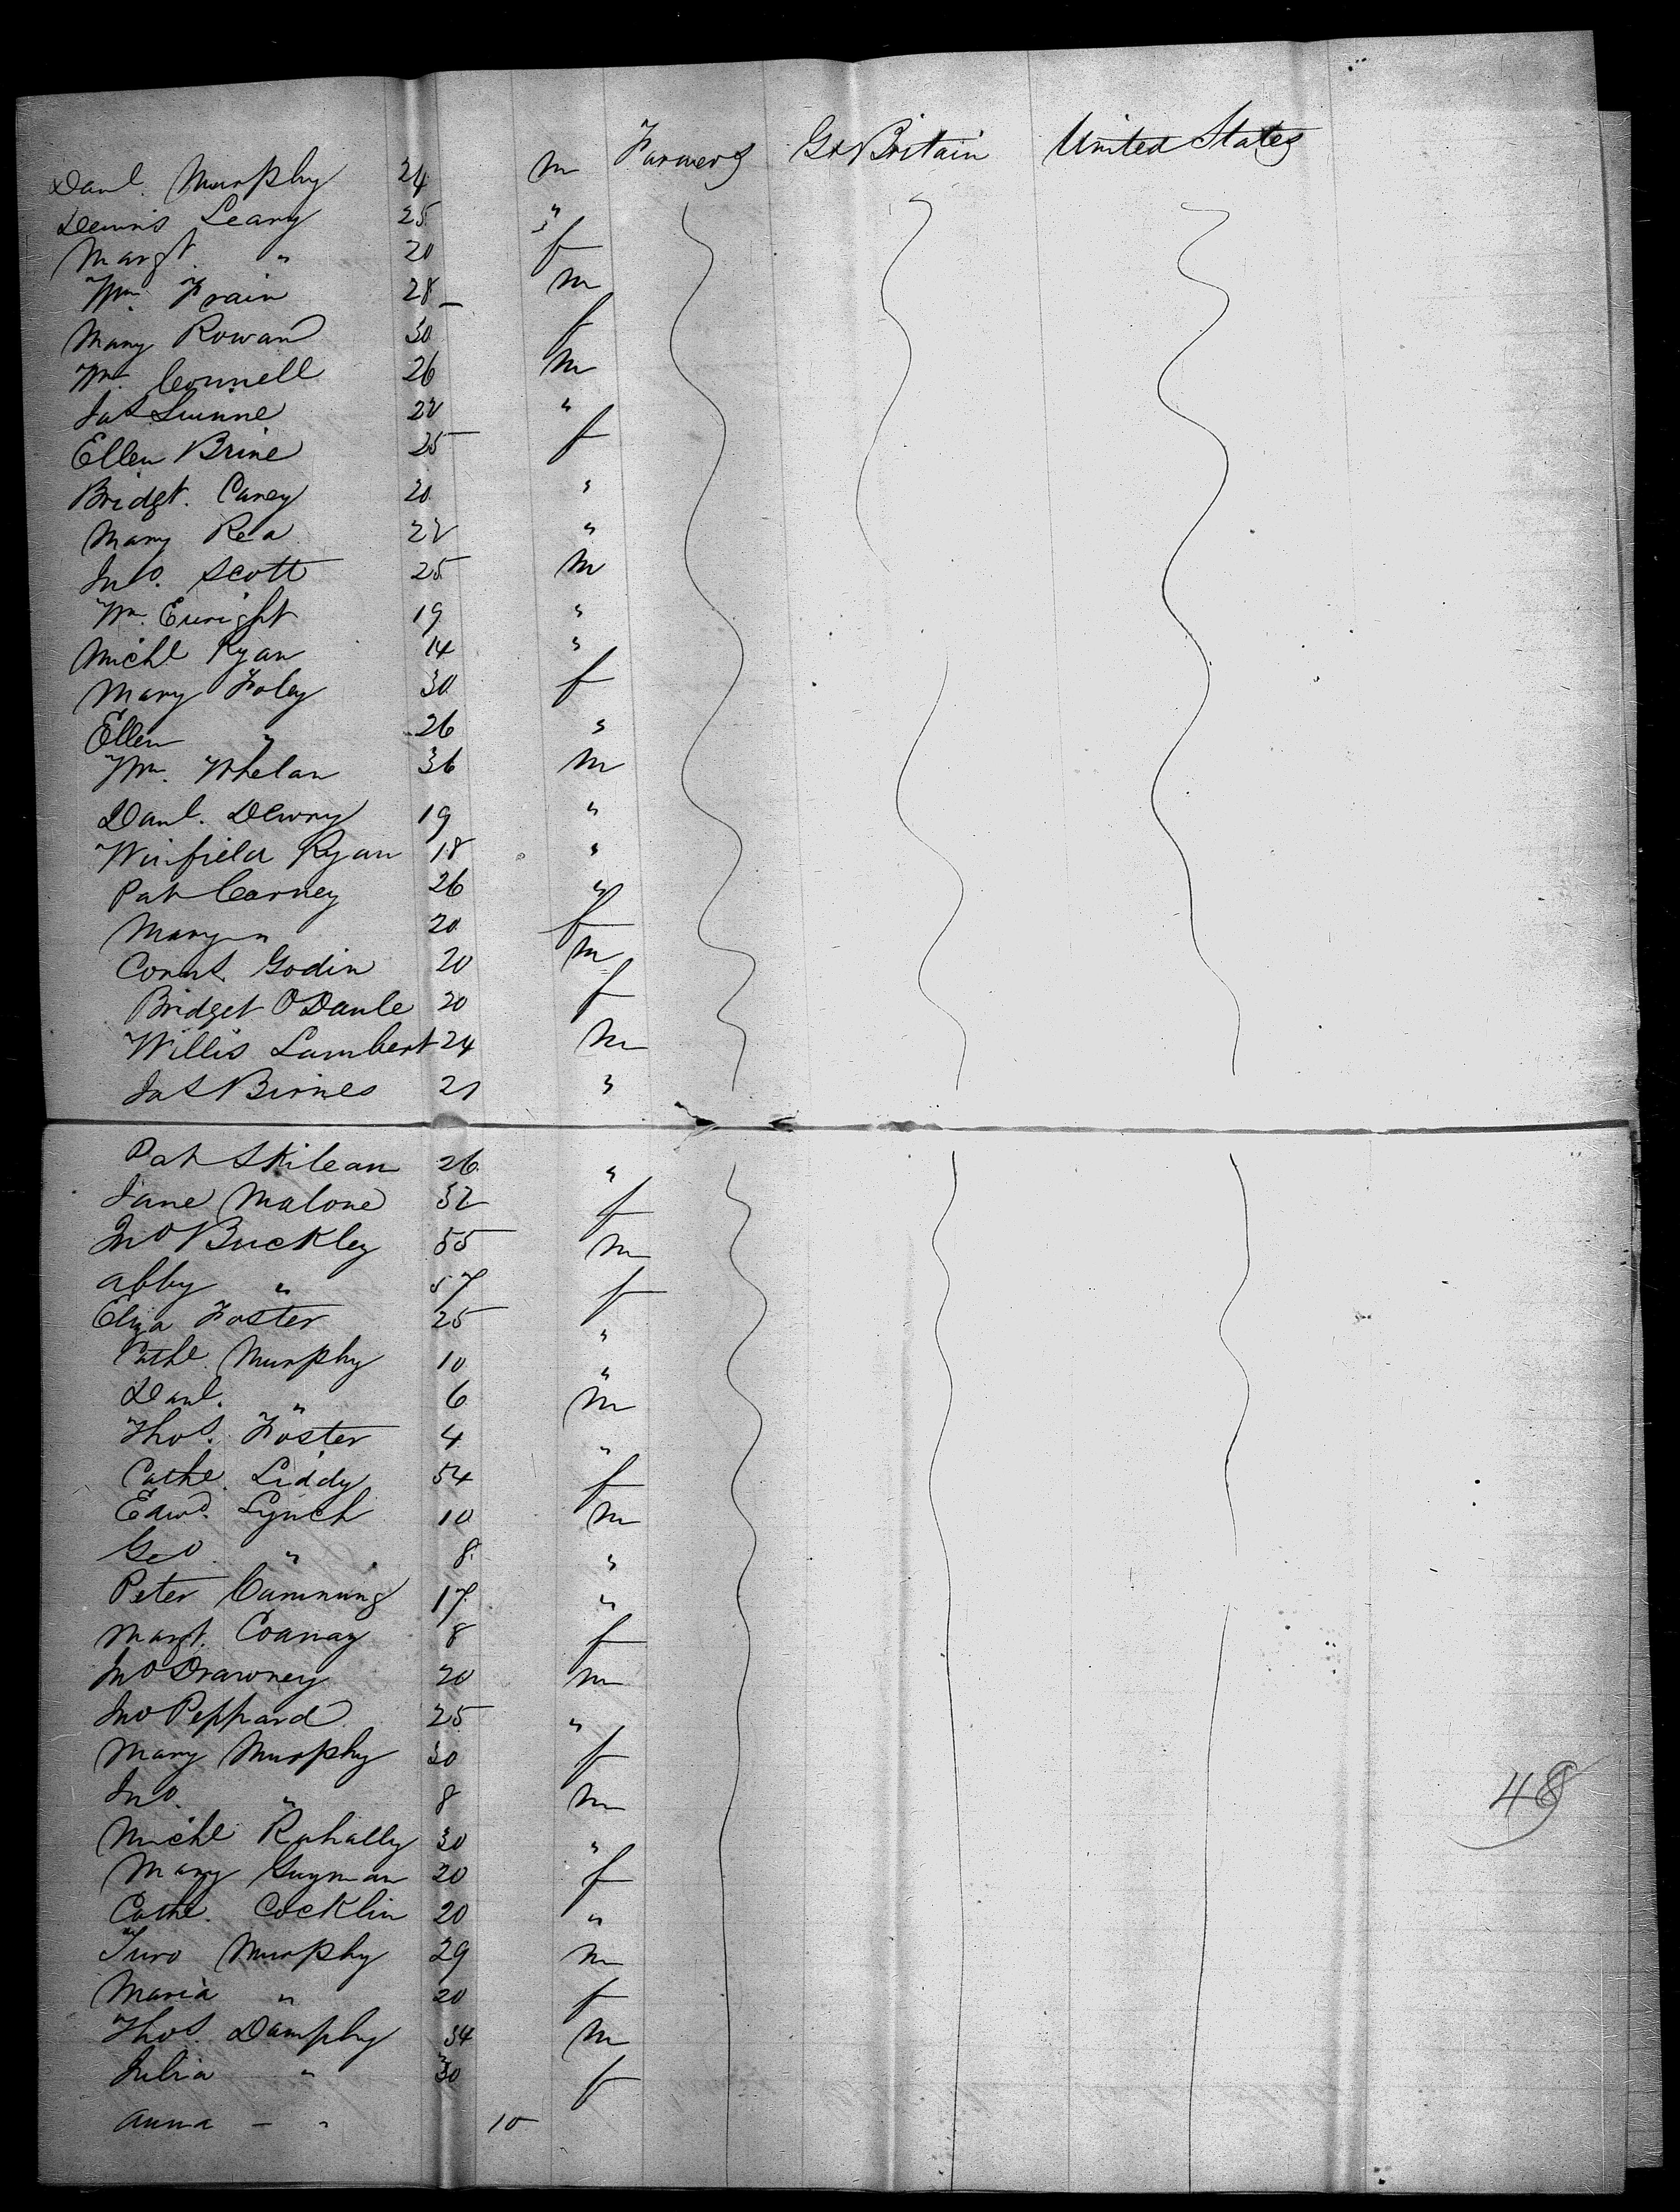 Danl. Murphy 24 m Farmers Gt Britain United States
Dennis Leary 25 "
Margt. " 20 f
Wm. Frain 28 m
Mary Rowan 30 f
Wm. Connell 26 m
Jas Quinne 22 "
Ellen Brine 25 f
Bridgt. Carey 20 "
Mary Rea 22 "
Jno. Scott 25 m
Wm. Enright 19 "
Michl Ryan 14 "
Mary Foley 30 f
Ellen " 26 "
Wm. Whelan 36 m
Danl. Dewny 19 "
Winfield Ryan 18 "
Pat Carney 26 "
Mary " 20 f
Corns. Godin 20 m
Bridget O Danle 20 f
Willis Lambert 24 m
Jas Birnes 21 "
Pat Skilean 26 "
Jane Malone 32 f
Jno Buckley 55 m
Abby " 57 f
Eliza Foster 25 "
Cathe. Murphy 10 "
Danl. " 6 m
Thos. Foster 4 "
Cathe. Liddy 54 f
Edwd. Lynch 10 m
Geo. " 8 "
Peter Camming 17 "
Margt. Coanay 8 f
Jno Drawney 20 m
Jno Peppard 25 "
Mary Murphy 30 f
Jno. " 8 m
Michl Rahally 30 "
Mary Guyman 20 f
Cathe. Cocklin 20 "
Murphy 29 m
Maria " 20 f
Thos. Damphy 34 m
Julia " 30 f
Anna - " 10
48